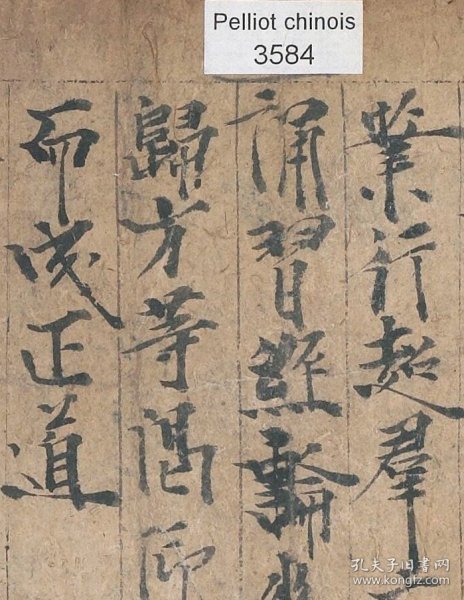 Pelliot chinois
3584
業行超羣
誦習
歸方等即
而成正道
孔夫子旧书网
www.kongfz.com